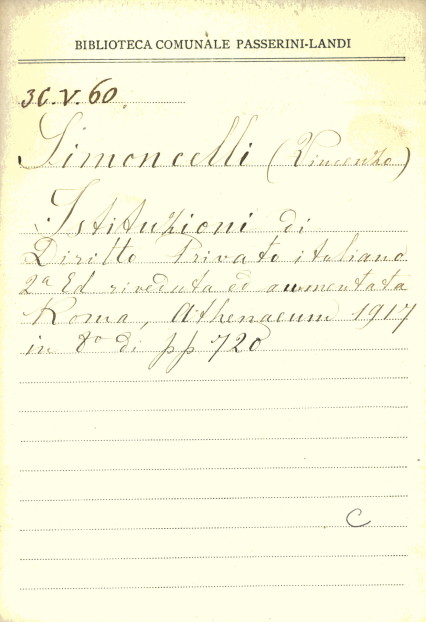 BIBLIOTECA COMUNALE PASSERINI-LANDI
3C.V.60.
Simoncelli (Vincenzo)
Istituzioni di
Diritto Privato italiano
2ª Ed riveduta ed aumentata
Roma, Athenaeum 1917
in 8º di pp 720
C